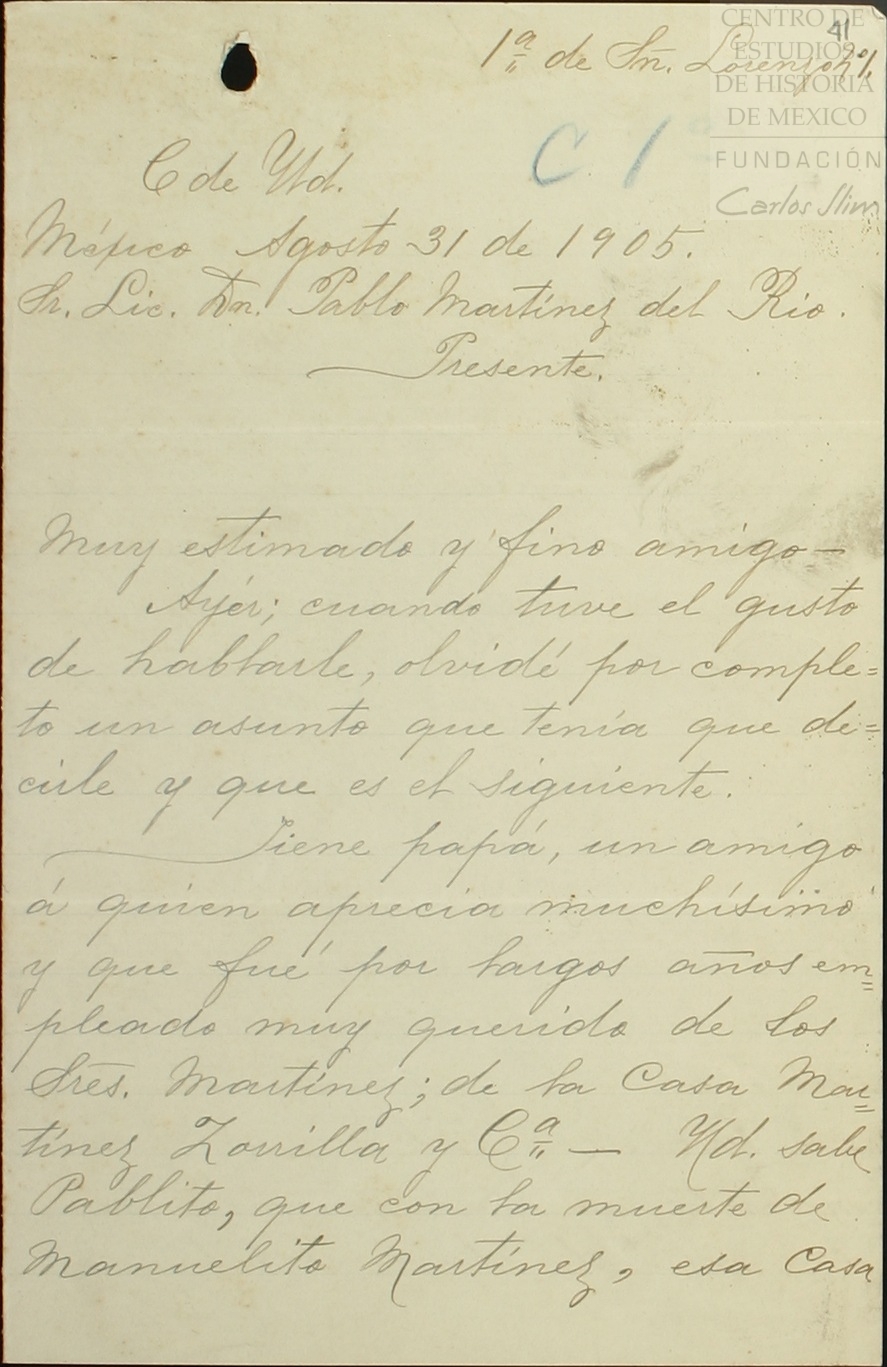 41
1ª de Sn. Lorenzo
C 1
CENTRO DE
ESTUDIOS
DE HISTORIA
DE MEXICO
FUNDACIÓN
Carlos Slim
C de Ud.
México Agosto 31 de 1905.
Sr. Lic. Dn. Pablo Martínez del Rio.
Presente.
Muy estimado y fino amigo—
Ayér; cuando tuve el gusto
de hablarle, olvidé por comple=
to un asunto que tenía que de=
cirle y que es el siguiente.
Tiene papá, un amigo
á quien aprecia muchísimo
y que fué por largos años em=
pleado muy querido de los
Sres. Martínez; de la Casa Mar=
tínez Zorrilla y Cª — Ud. sabe
Pablito, que con la muerte de
Manuelito Martínez, esa Casa